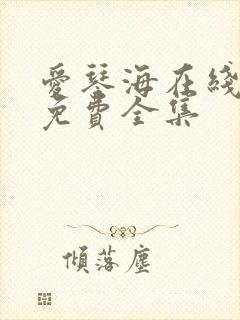 愛琴海在綫
免費全集
傾落塵